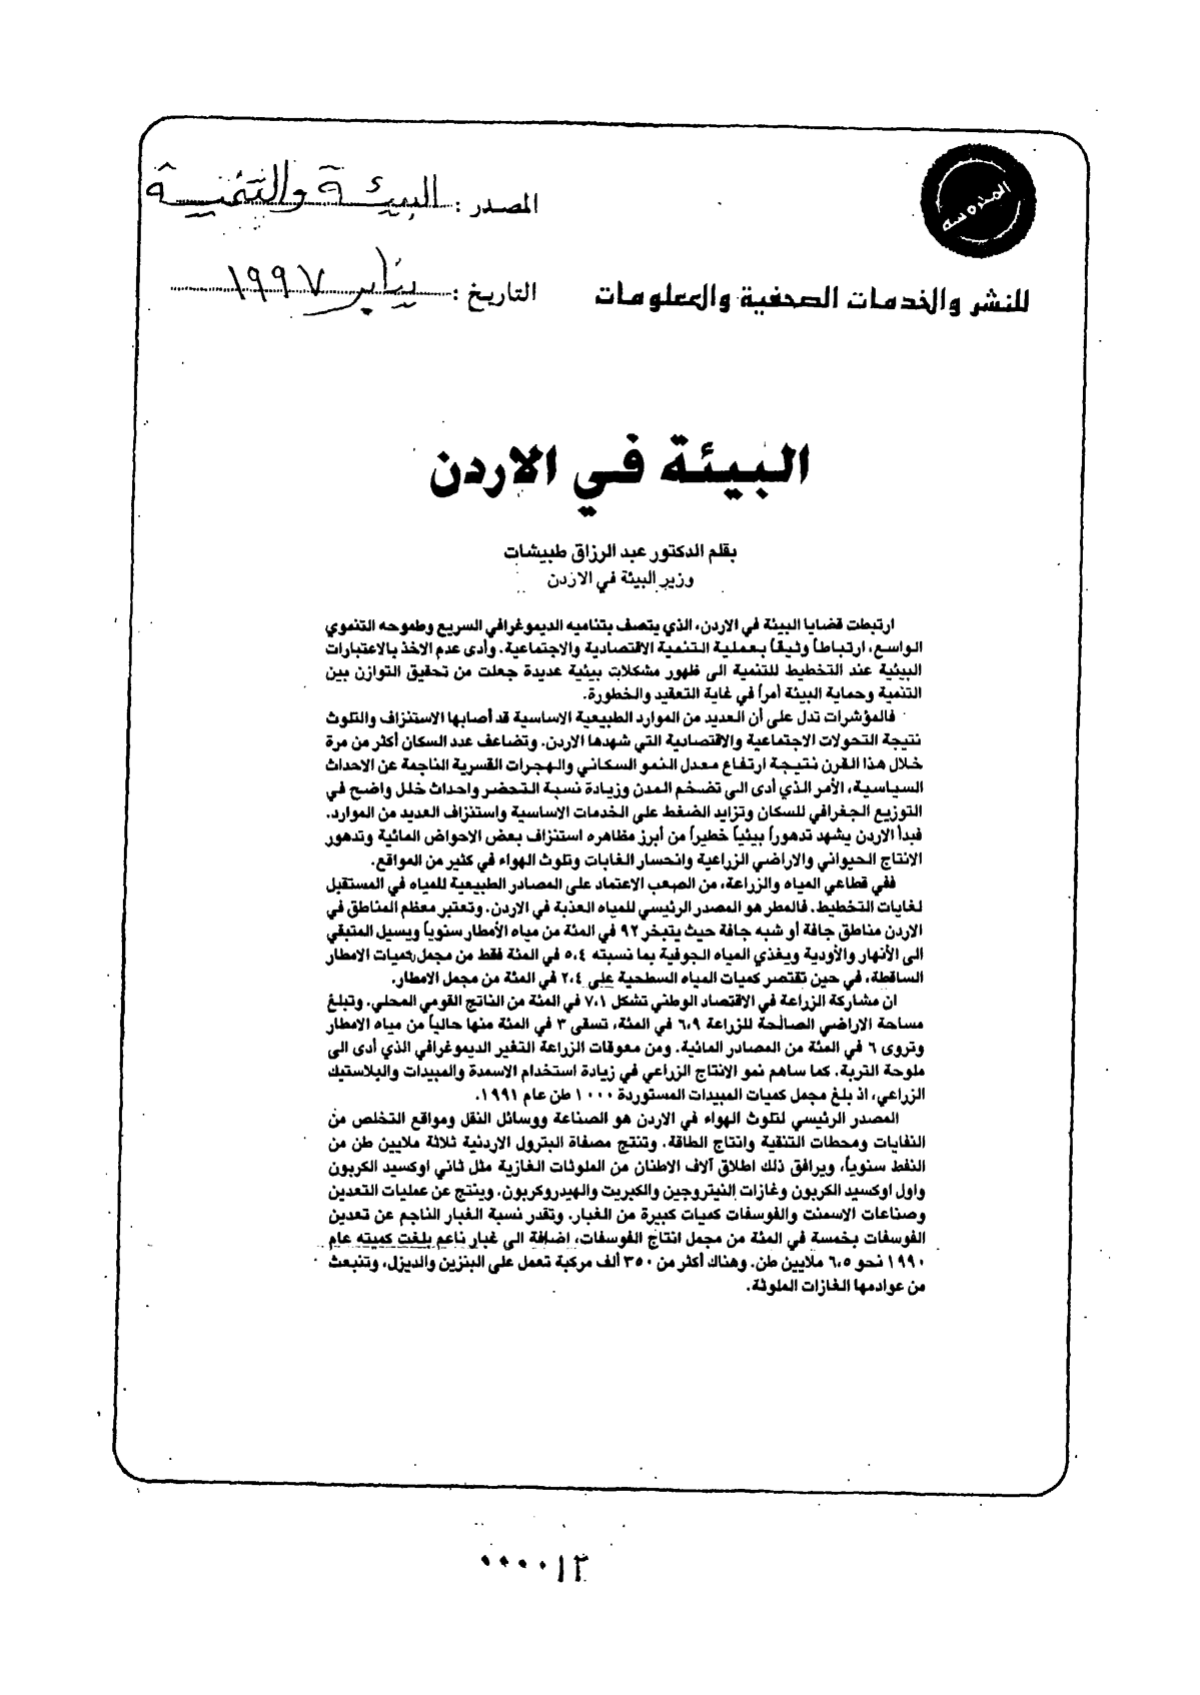 المصدر : البيئة والتنمية
التاريخ : يناير ١٩٩٧
للنشر والخدمات الصحفية والمعلومات
البيئة في الاردن
بقلم الدكتور عبد الرزاق طبيشات
وزير البيئة في الاردن
ارتبطت قضايا البيئة في الاردن، الذي يتصف بتناميه الديموغرافي السريع وطموحه التنموي
الواسع، ارتباطاً وثيقاً بعملية التنمية الاقتصادية والاجتماعية. وأدى عدم الاخذ بالاعتبارات
البيئية عند التخطيط للتنمية الى ظهور مشكلات بيئية عديدة جعلت من تحقيق التوازن بين
التنمية وحماية البيئة أمراً في غاية التعقيد والخطورة.
فالمؤشرات تدل على أن العديد من الموارد الطبيعية الاساسية قد أصابها الاستنزاف والتلوث
نتيجة التحولات الاجتماعية والاقتصادية التي شهدها الاردن. وتضاعف عدد السكان أكثر من مرة
خلال هذا القرن نتيجة ارتفاع معدل النمو السكاني والهجرات القسرية الناجمة عن الاحداث
السياسية، الأمر الذي أدى الى تضخم المدن وزيادة نسبة التحضر واحداث خلل واضح في
التوزيع الجغرافي للسكان وتزايد الضغط على الخدمات الاساسية واستنزاف العديد من الموارد.
فبدأ الاردن يشهد تدهوراً بيئياً خطيراً من أبرز مظاهره استنزاف بعض الاحواض المائية وتدهور
الانتاج الحيواني والاراضي الزراعية وانحسار الغابات وتلوث الهواء في كثير من المواقع.
ففي قطاعي المياه والزراعة، من الصعب الاعتماد على المصادر الطبيعية للمياه في المستقبل
لغايات التخطيط. فالمطر هو المصدر الرئيسي للمياه العذبة في الاردن. وتعتبر معظم المناطق في
الاردن مناطق جافة أو شبه جافة حيث يتبخر ٩٢ في المئة من مياه الأمطار سنوياً ويسيل المتبقي
الى الأنهار والأودية ويغذي المياه الجوفية بما نسبته ٥،٤ في المئة فقط من مجمل كميات الامطار
الساقطة، في حين تقتصر كميات المياه السطحية على ٢،٤ في المئة من مجمل الامطار.
ان مشاركة الزراعة في الاقتصاد الوطني تشكل ٧،١ في المئة من الناتج القومي المحلي. وتبلغ
مساحة الاراضي الصالحة للزراعة ٦،٩ في المئة، تسقى ٣ في المئة منها حالياً من مياه الامطار
وتروى ٦ في المئة من المصادر المائية. ومن معوقات الزراعة التغير الديموغرافي الذي أدى الى
ملوحة التربة. كما ساهم نمو الانتاج الزراعي في زيادة استخدام الاسمدة والمبيدات والبلاستيك
الزراعي، اذ بلغ مجمل كميات المبيدات المستوردة ١٠٠٠ طن عام ١٩٩١.
المصدر الرئيسي لتلوث الهواء في الاردن هو الصناعة ووسائل النقل ومواقع التخلص من
النفايات ومحطات التنقية وانتاج الطاقة. وتنتج مصفاة البترول الاردنية ثلاثة ملايين طن من
النفط سنوياً، ويرافق ذلك اطلاق آلاف الاطنان من الملوثات الغازية مثل ثاني اوكسيد الكربون
واول اوكسيد الكربون وغازات النيتروجين والكبريت والهيدروكربون. وينتج عن عمليات التعدين
وصناعات الاسمنت والفوسفات كميات كبيرة من الغبار. وتقدر نسبة الغبار الناجم عن تعدين
الفوسفات بخمسة في المئة من مجمل انتاج الفوسفات، اضافة الى غبار ناعم بلغت كميته عام
١٩٩٠ نحو ٦،٥ ملايين طن. وهناك أكثر من ٣٥٠ ألف مركبة تعمل على البنزين والديزل، وتنبعث
من عوادمها الغازات الملوثة.